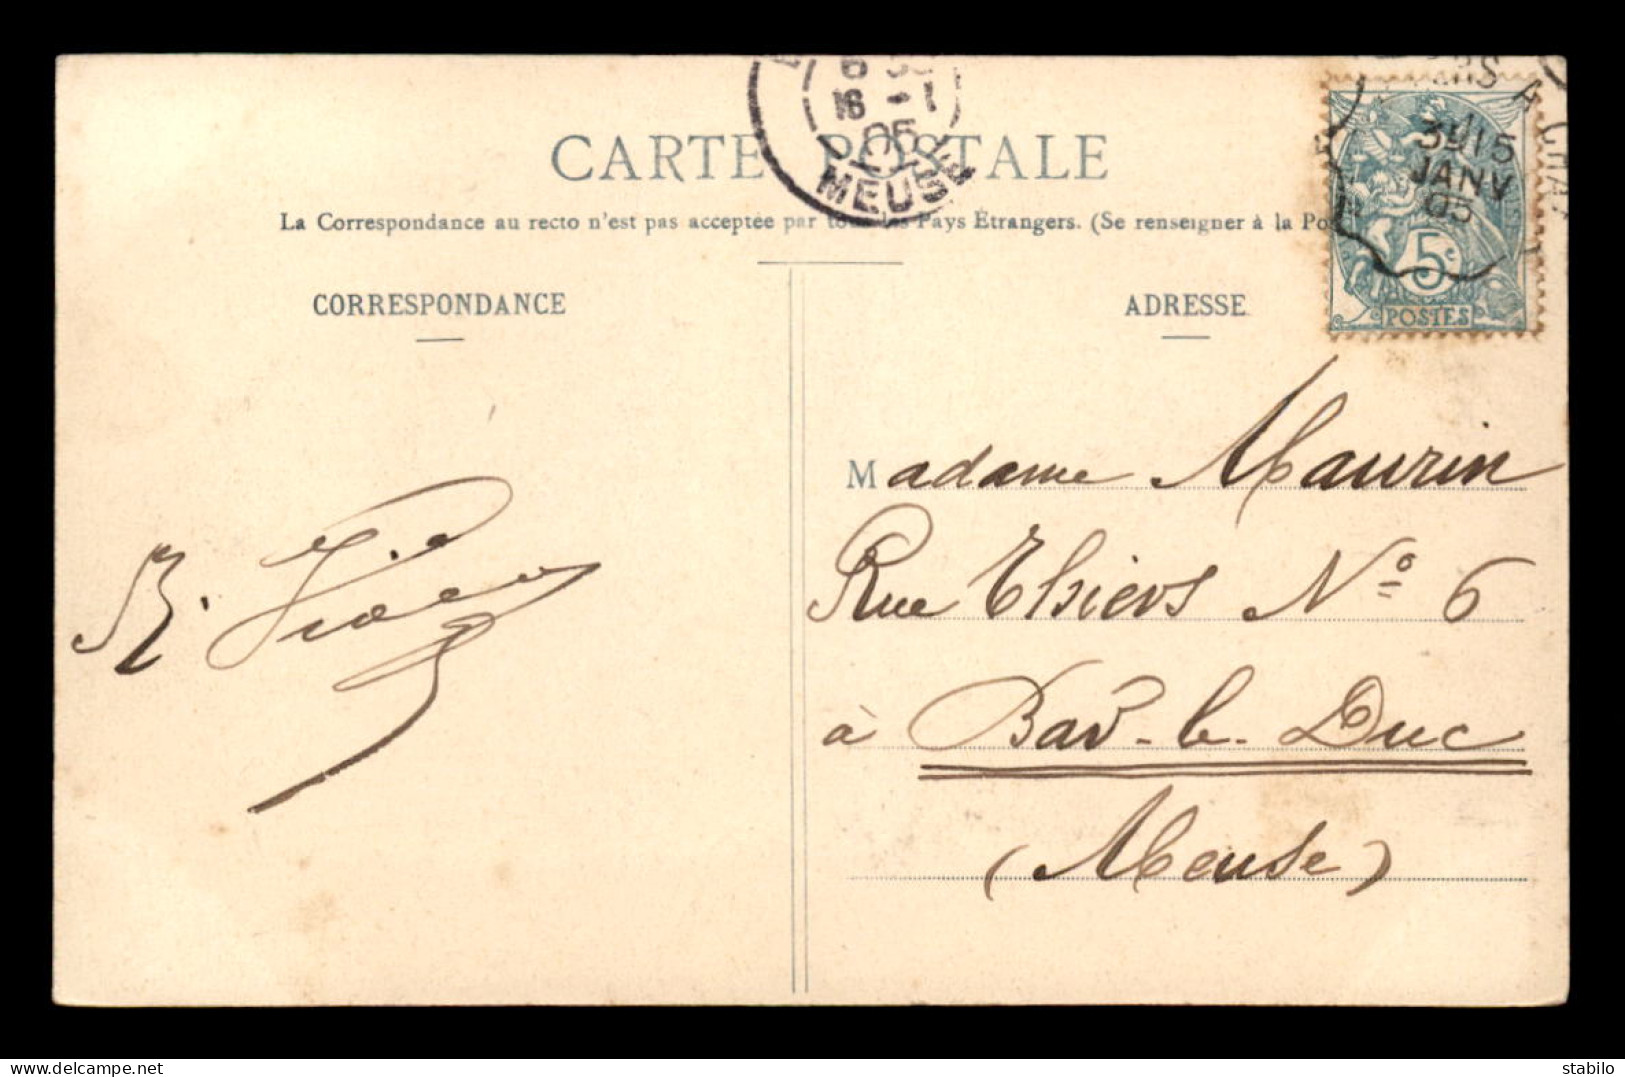 CARTE POSTALE
La Correspondance au recto n'est pas acceptée par tous les Pays Étrangers. (Se renseigner à la Po
CORRESPONDANCE
ADRESSE
16 -1
05
MEUSE
15
JANV
05
5c
POSTES
Madame Maurin
Rue Thiers No 6
à Bar-le-Duc
(Meuse)
delcampe.net
stabilo